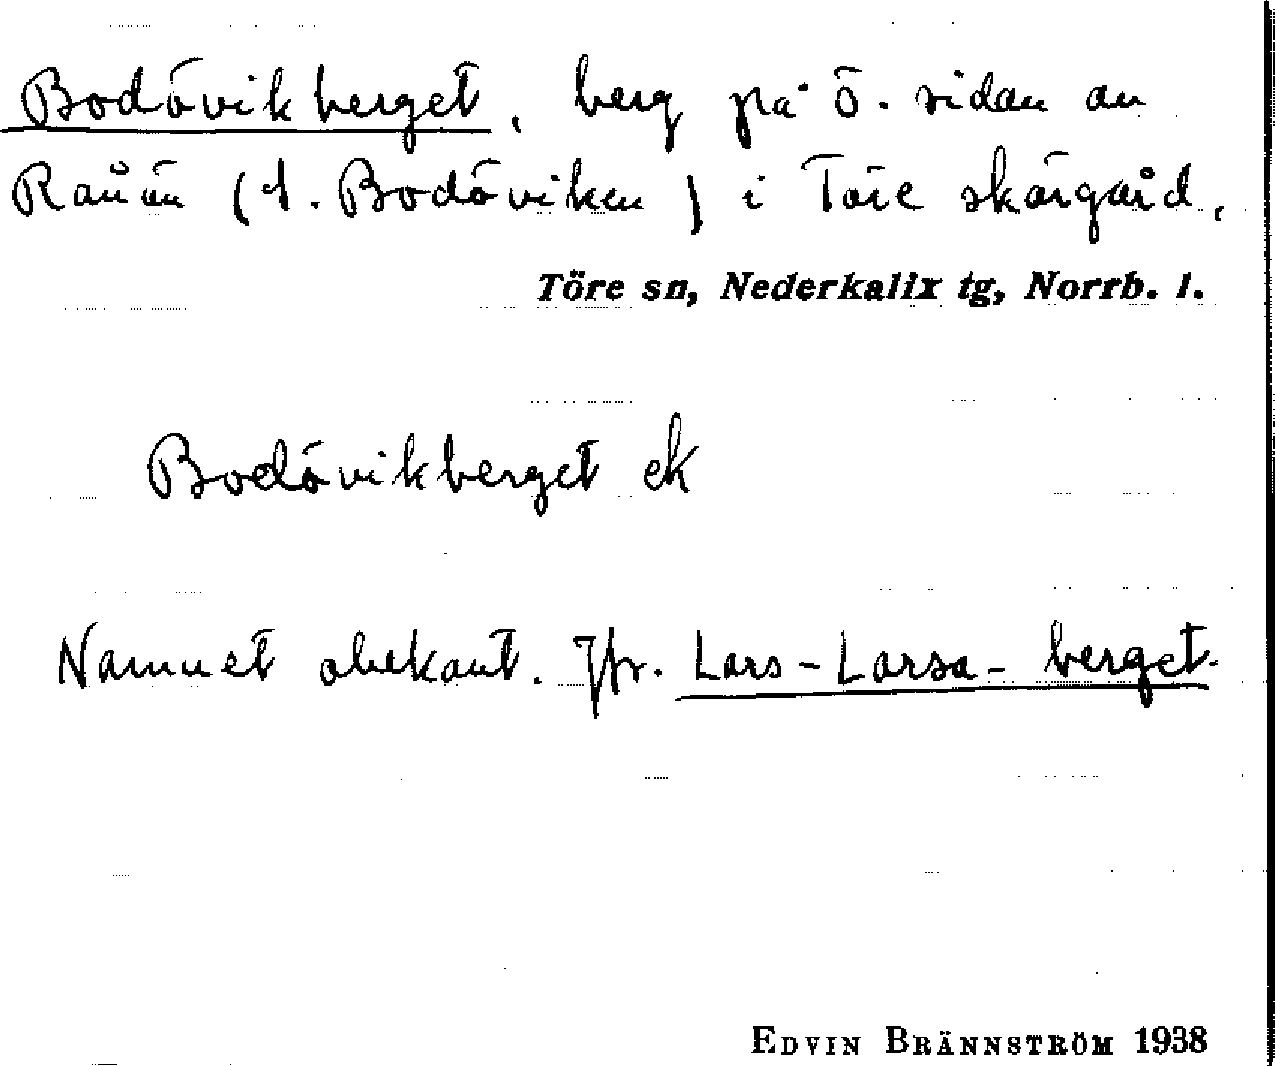 Bodövikberget, berg på ö. sidan av
Rånön (t. Bodöviken) i Töre skärgård,
Töre sn, Nederkalix tg, Norrb. l.
Bodövikberget ek
Namnet obekant. Jfr. Lars-Larsa-berget.
EDVIN BRÄNNSTRÖM 1938